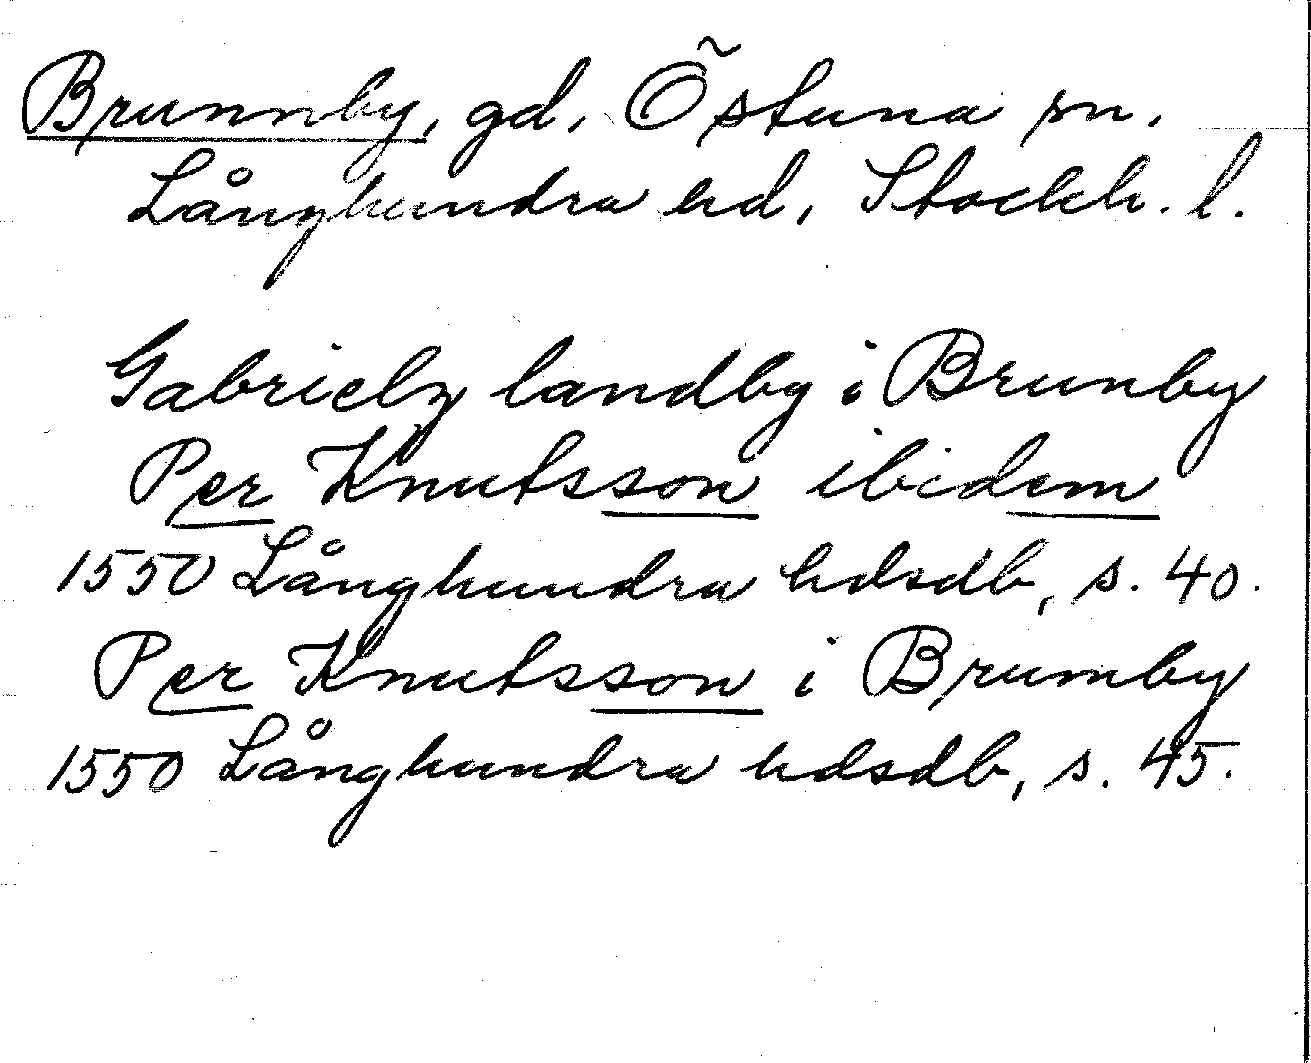 Brunnby, gd, Östuna sn.
Långhundra hd, Stockh. l.
Gabrielz landby i Brunby
Per Knutsson ibidem
1550 Långhundra hdsdb, s. 40.
Per Knutsson i Brumby
1550 Långhundra hdsdb, s. 45.